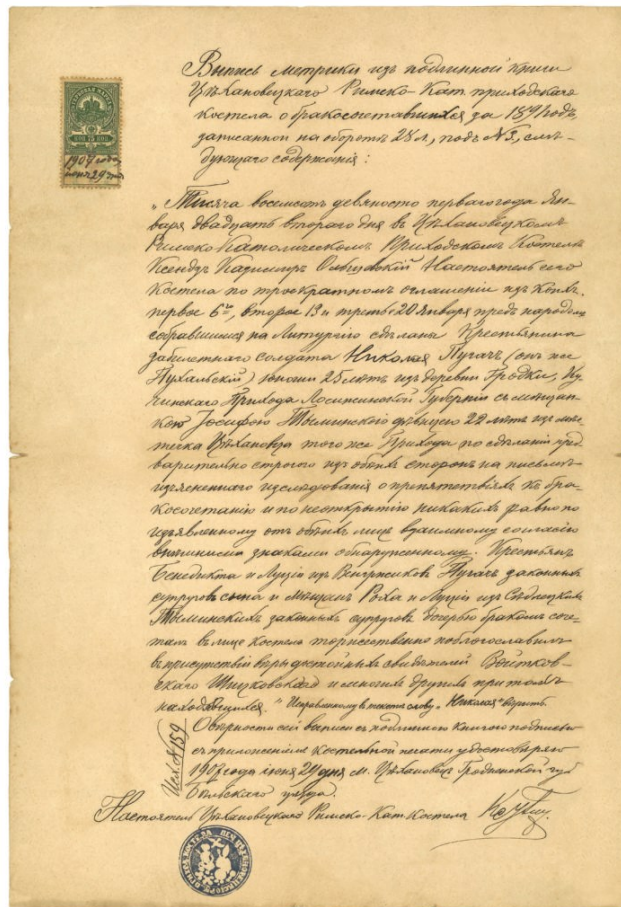 Выпись метрики изъ подлинной книги
Цѣхановецкаго Римско-Кат. приходскаго
костела о бракосочетавшихся за 1891 годъ,
записанной на оборотѣ 28 л., подъ №3, слѣ-
дующаго содержанія:
1907 года
"Тысяча восемсотъ девяносто перваго года Ян-
варя двадцать втораго дня въ Цѣхановецкомъ
Римско Католическомъ Приходскомъ Костелѣ
Ксендзъ Казимиръ Настоятель сего
Костела по троекратномъ оглашеніи изъ коихъ
первое 6го, второе 13 и третье 20 Января предъ народомъ
собравшимся на Литургію сдѣланы Крестьянина
забилетнаго солдата Николая Пугачъ (онъ же
Пухальскій) юношу 25 лѣтъ изъ деревни Гродки,
Прихода Ломжинской Губерніи съ мѣщан-
кою Іосифою Тыминскою дѣвицею 22 лѣтъ изъ мѣс-
течка Цѣхановца того же Прихода по сдѣланіи пред-
варительно строгого изъ обѣихъ сторонъ на письмѣ
изъясненнаго изслѣдованія о препятствіяхъ къ бра-
косочетанію и по неоткрытію никакихъ равно по
изъявленному отъ обѣихъ лицъ взаимному согласію
внѣшними знаками обнаруженному. Крестьянъ
Бенедикта и Луціи изъ Пугачъ законныхъ
супруговъ сына и Мѣщанъ Роха и Луціи изъ
Тыминскихъ законныхъ супруговъ дочерью бракомъ соче-
талъ въ лицѣ костела торжественно поблагословилъ
въ присутствіи вѣры достойныхъ свидѣтелей Войтков-
скаго и многихъ другихъ при томъ
находившихся." Исправленному въ текстѣ слову "Николая" вѣрить.
О вѣрности сей выписи съ подлинною книгою подписью
съ приложеніемъ костельной печати удостовѣряю
1907 года іюня 29 дня м. Цѣхановецъ Гродненской губ.
Бѣльскаго уѣзда.
Исх. №159
Настоятель Цѣхановецкаго Римско-Кат. Костела